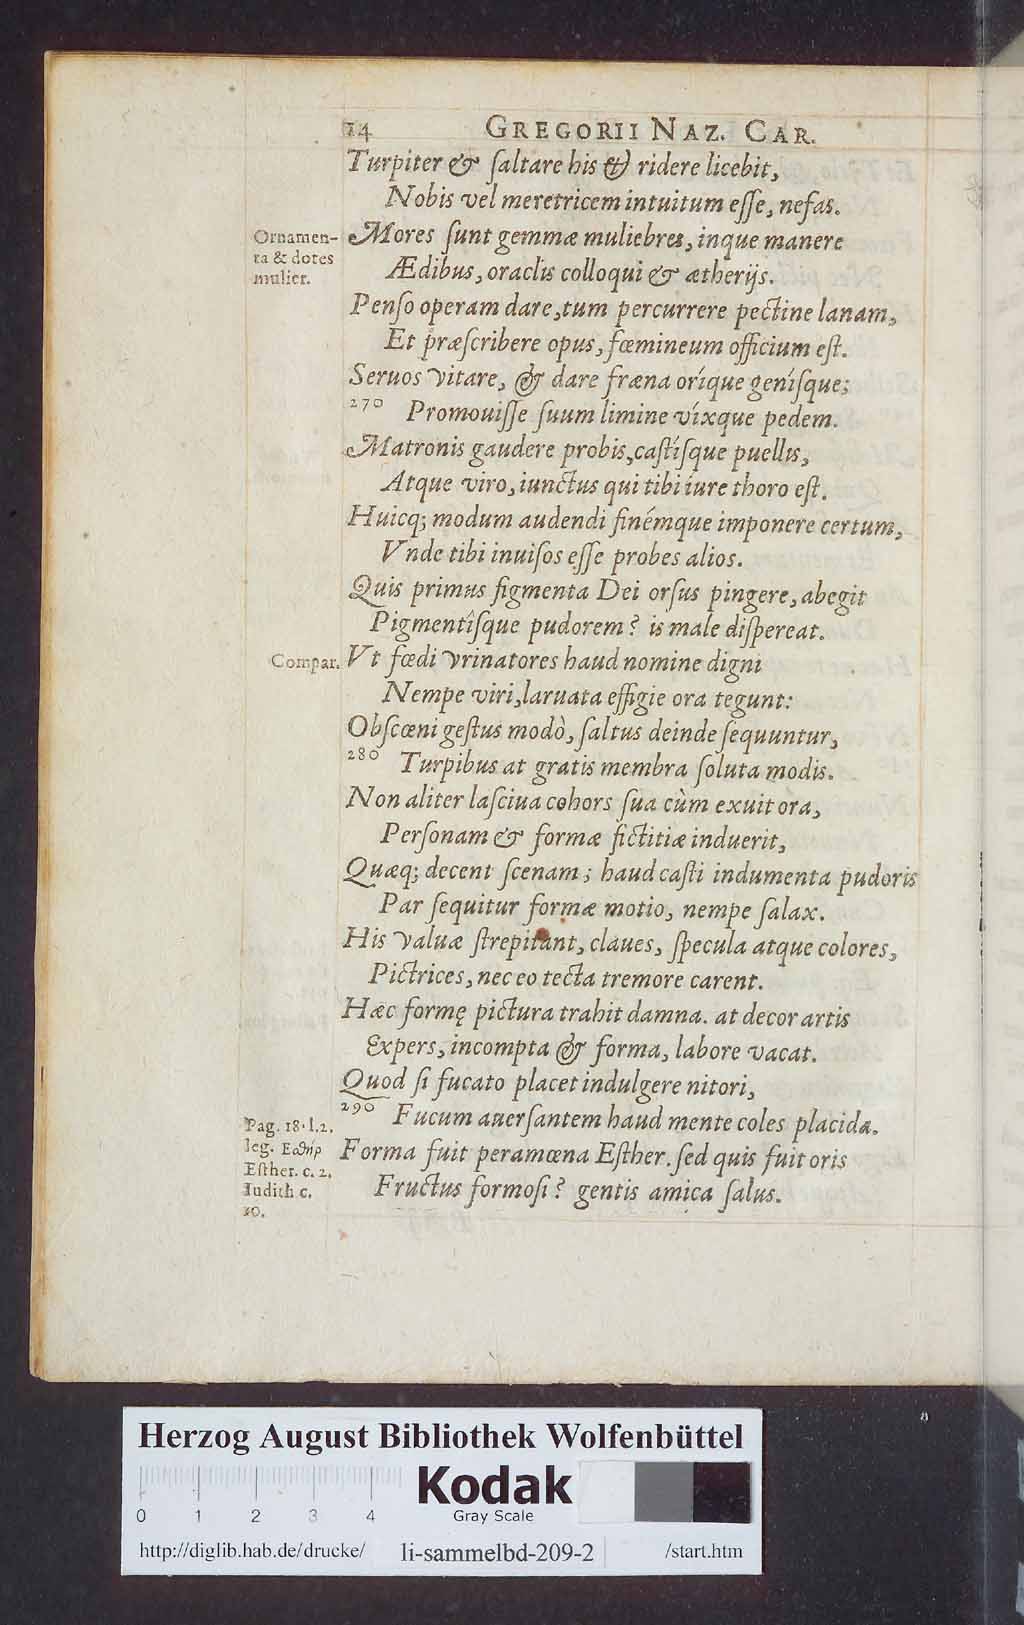 14 GREGORII NAZ. CAR.
Turpiter & ſaltare his & ridere licebit,
Nobis vel meretricem intuitum eſſe, nefas.
Ornamen-
ta & dotes
mulier.
Mores ſunt gemmæ muliebres, inque manere
Ædibus, oraclis colloqui & ætherijs.
Penſo operam dare, tum percurrere pectine lanam,
Et præſcribere opus, fœmineum officium eſt.
Seruos vitare, & dare fræna oríque geníſque;
270 Promouiſſe ſuum limine víxque pedem.
Matronis gaudere probis, caſtíſque puellis,
Atque viro, iunctus qui tibi iure thoro eſt.
Huicq; modum audendi finémque imponere certum,
Vnde tibi inuiſos eſſe probes alios.
Quis primus figmenta Dei orſus pingere, abegit
Pigmentîſque pudorem? is male diſpereat.
Compar.
Vt fœdi vrinatores haud nomine digni
Nempe viri, laruata effigie ora tegunt:
Obſcœni geſtus modò, ſaltus deinde ſequuntur,
280 Turpibus at gratis membra ſoluta modis.
Non aliter laſciua cohors ſua cùm exuit óra,
Perſonam & formæ fictitiæ induerit,
Quæq; decent ſcenam; haud caſti indumenta pudoris
Par ſequitur formæ motio, nempe ſalax.
His valuæ ſtrepitant, claues, ſpecula atque colores,
Pictrices, nec eo tecta tremore carent.
Hæc formę pictura trahit damna. at decor artis
Expers, incompta & forma, labore vacat.
Quod ſi fucato placet indulgere nitori,
290 Fucum auerſantem haud mente coles placida.
Pag. 18. l.2.
leg. Εσθὴρ
Eſther. c. 2.
Iudith c.
10.
Forma fuit peramœna Eſther. ſed quis fuit oris
Fructus formoſi? gentis amica ſalus.
Herzog August Bibliothek Wolfenbüttel
Kodak
Gray Scale
0 1 2 3 4
http://diglib.hab.de/drucke/ li-sammelbd-209-2 /start.htm